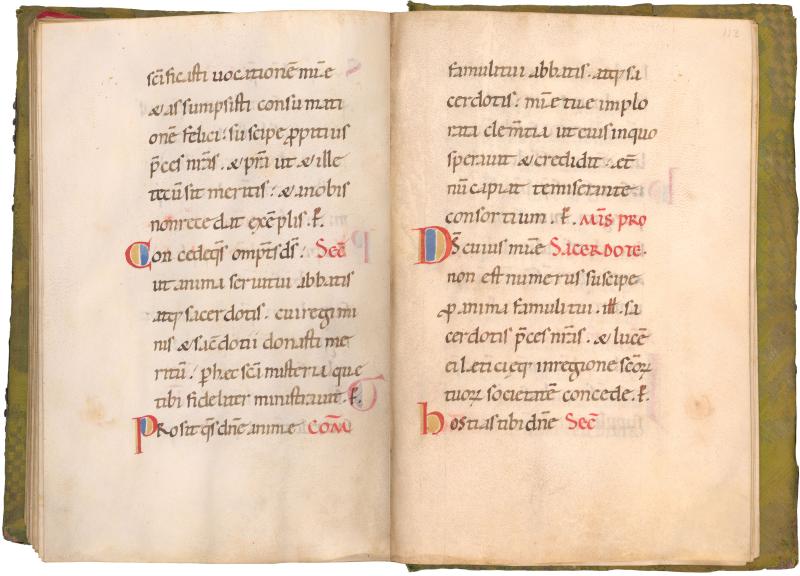 scificasti uocationē mīe
& assumpsisti consumati
onē felici: suscipe ꝓpitius
p̄ces nrās. & p̄ri ut & ille
tecū sit meritis: & a nobis
non recedat exēplis. ꝑ.
Con cedeq̄s omp̄ts d̄s: Secī
ut anima serui tui abbatis
atq; sacerdotis. cui regimi
nis & sacdotii donasti me
ritū: ꝑ hec scī misteria que
tibi fideliter ministrauit. ꝑ.
Prosit q̄s dn̄e anime COM̄
112
famuli tui abbatis. atq; sa
cerdotis: mīe tue implo
rata clem̄tia ut eius in quo
sperauit & credidit. & et̄
nū capiat te miserante
consortium. ꝑ. MIS̄ PRO
D̄s cuius mīe SACERDOTE.
non est numerus suscipe
ꝓ anima famuli tui. ill. sa
cerdotis p̄ces nrās. & lucē
ei letitieq; in regione scōꝝ
tuoꝝ societatē concede. ꝑ.
hostias tibi dn̄e Secī